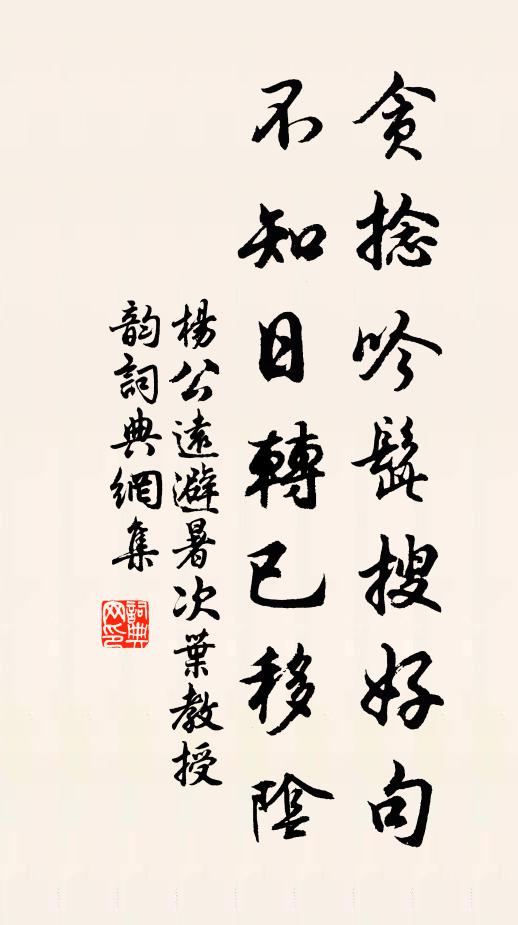 貪捻吟髭搜好句
不知日轉已移陰
楊公遠避暑次葉教授
韵詞典網集
詞典网印